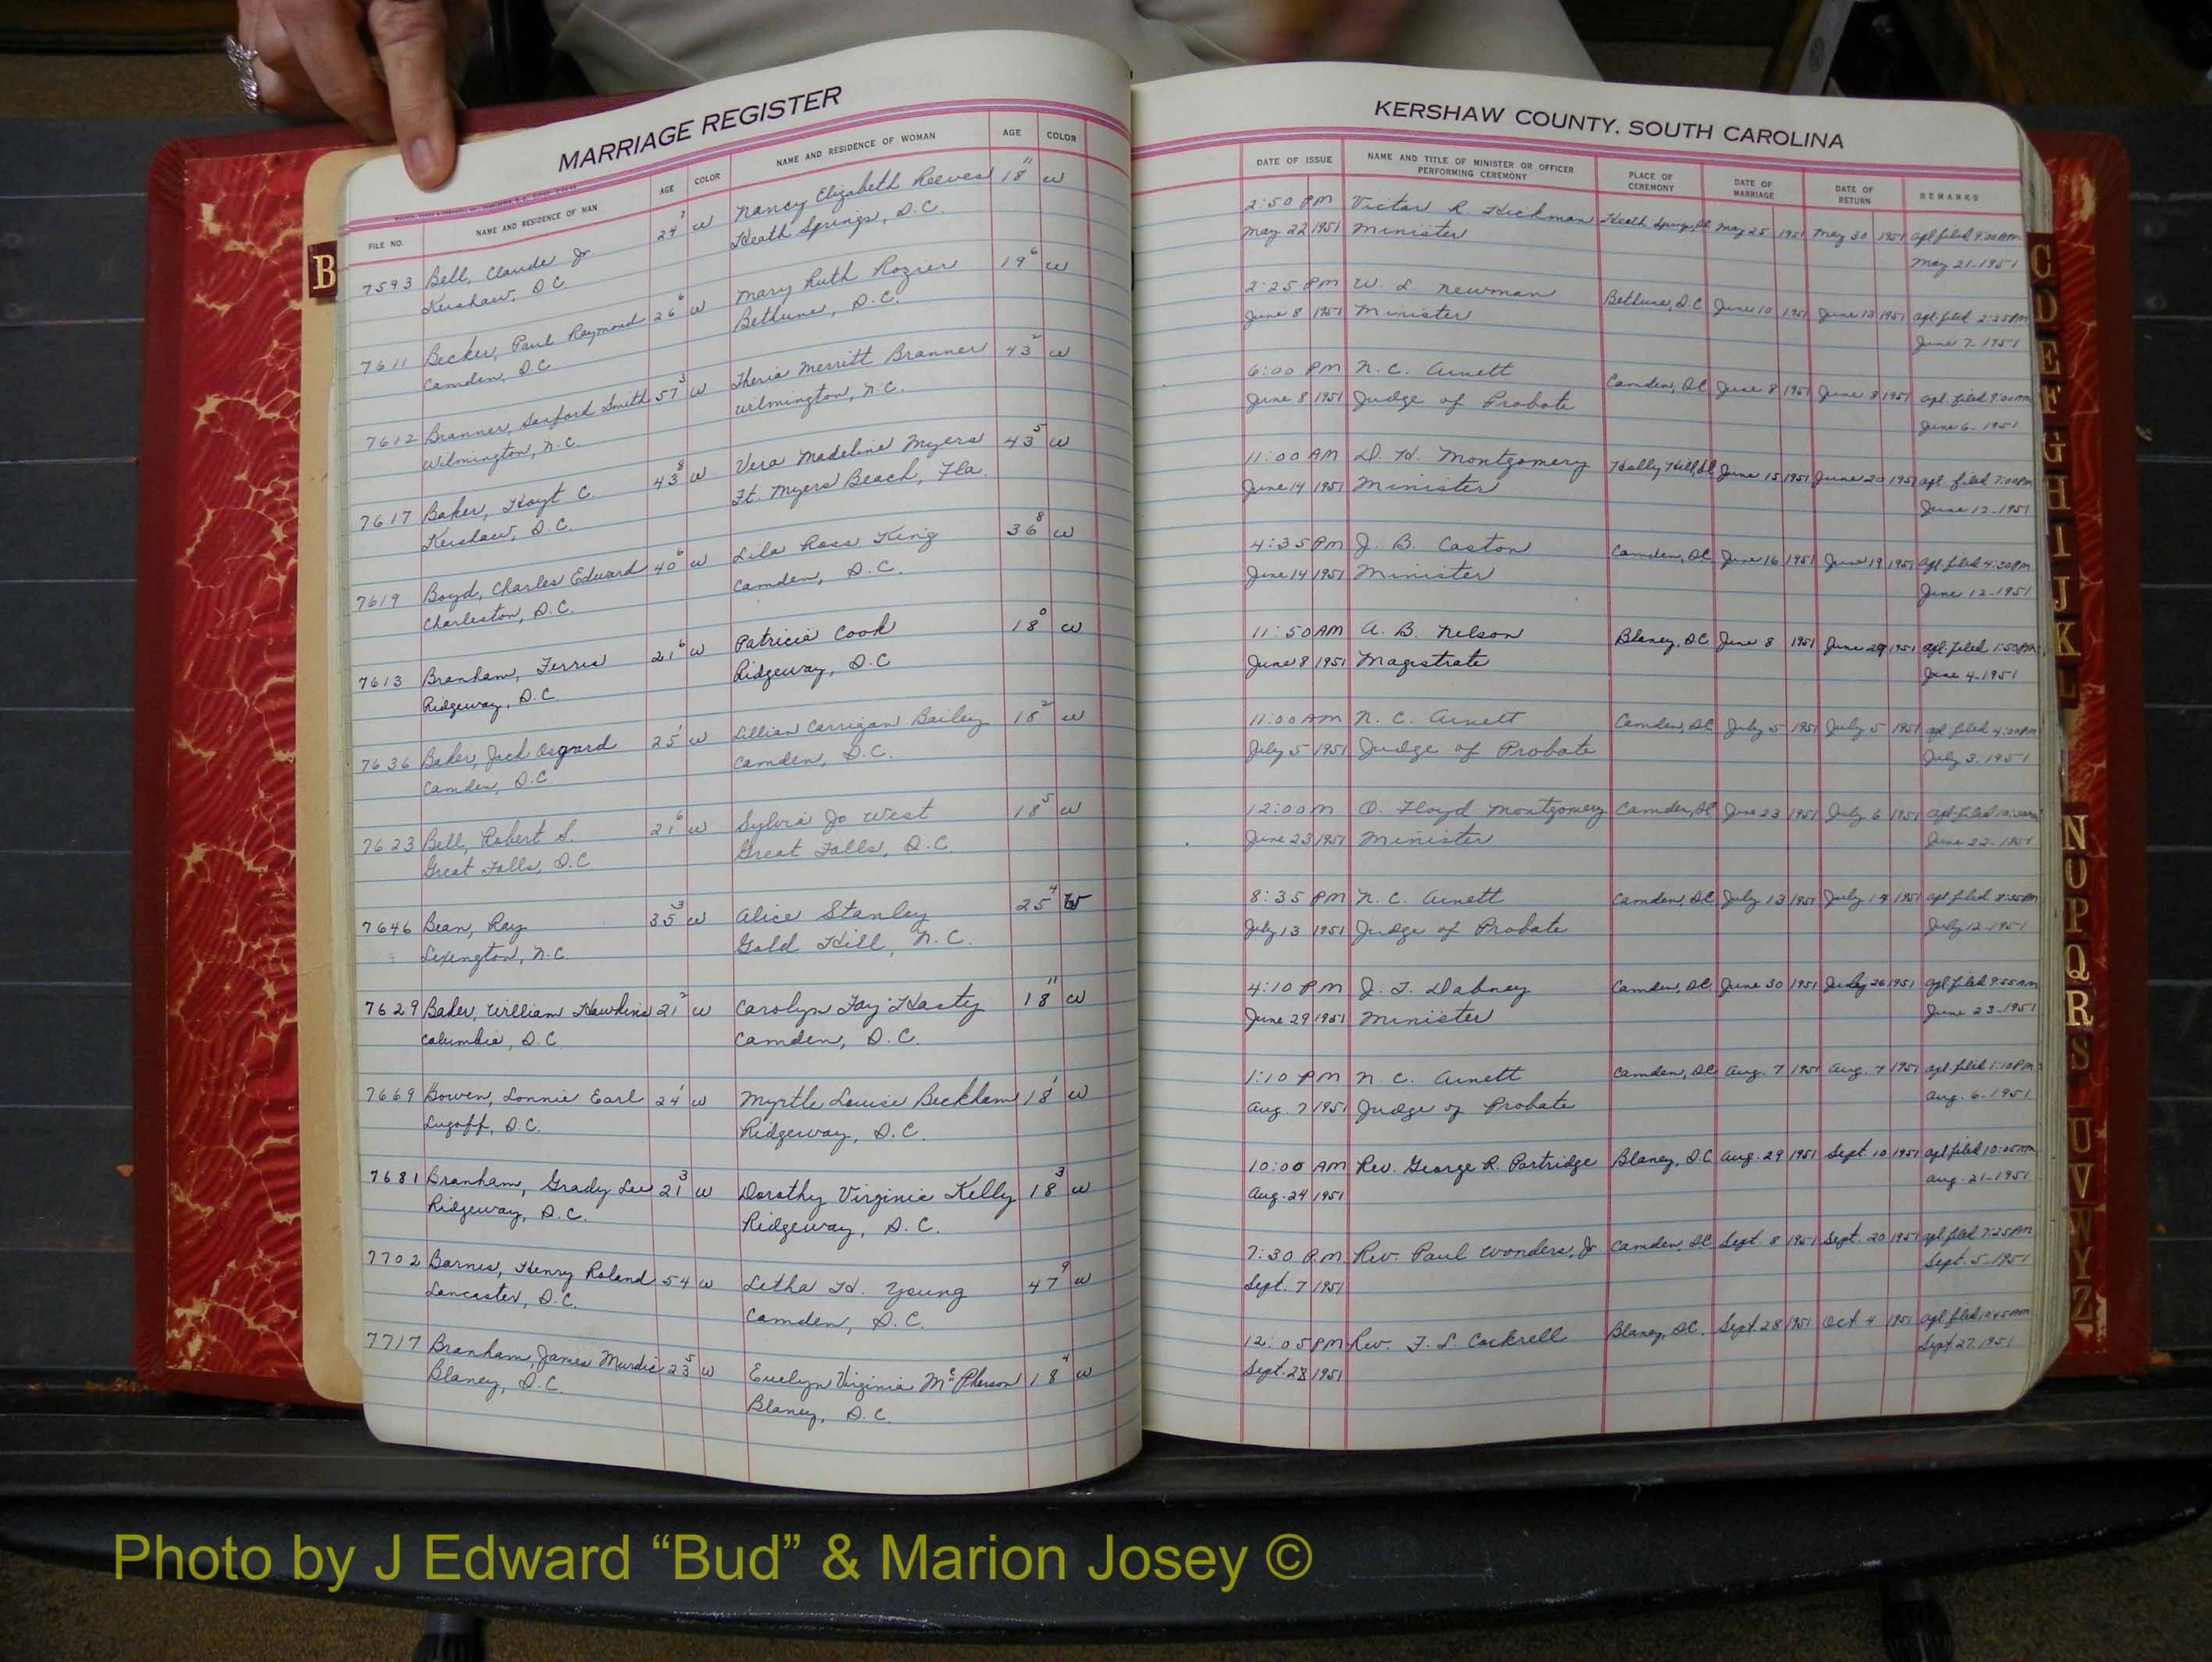 MARRIAGE REGISTER
KERSHAW COUNTY, SOUTH CAROLINA
FILE NO. NAME AND RESIDENCE OF MAN AGE COLOR NAME AND RESIDENCE OF WOMAN AGE COLOR
DATE OF ISSUE NAME AND TITLE OF MINISTER OR OFFICER PERFORMING CEREMONY PLACE OF CEREMONY DATE OF MARRIAGE DATE OF RETURN REMARKS
B
7593 Bell, Claude Jr. 24 7 w Nancy Elizabeth Reeves 18 11 w
Kershaw, S.C. Heath Springs, S.C.
7611 Becker, Paul Raymond 26 6 w Mary Ruth Rozier 19 6 w
Camden, S.C. Bethune, S.C.
7612 Branner, Sanford Smith 57 3 w Theria Merritt Branner 43 2 w
Wilmington, N.C. Wilmington, N.C.
7617 Baker, Hoyt C. 43 8 w Vera Madeline Myers 43 5 w
Kershaw, S.C. Ft. Myers Beach, Fla.
7619 Boyd, Charles Edward 40 6 w Lila Ross King 36 8 w
Charleston, S.C. Camden, S.C.
7613 Branham, Ferris 21 6 w Patricia Cook 18 0 w
Ridgeway, S.C. Ridgeway, S.C.
7636 Baker, Jack 25 1 w Lillian Carrigan Bailey 18 2 w
Camden, S.C. Camden, S.C.
7623 Bell, Robert S. 21 6 w Sylvia Jo West 18 5 w
Great Falls, S.C. Great Falls, S.C.
7646 Bean, Ray 35 3 w Alice Stanley 25 4 W
Lexington, N.C. Gold Hill, N.C.
7629 Baker, William Hawkins 21 2 w Carolyn Fay Hasty 18 11 w
Columbia, S.C. Camden, S.C.
7669 Bowen, Lonnie Earl 24 1 w Myrtle Louise Beckham 18 1 w
Lugoff, S.C. Ridgeway, S.C.
7681 Branham, Grady Lee 21 3 w Dorothy Virginia Kelly 18 3 w
Ridgeway, S.C. Ridgeway, S.C.
7702 Barnes, Henry Roland 54 w Letha H. Young 47 9 w
Lancaster, S.C. Camden, S.C.
7717 Branham, James Murdic 23 5 w Evelyn Virginia McPherson 18 4 w
Blaney, S.C. Blaney, S.C.
2:50 PM Victor R. Hickman Heath Springs, SC May 25 1951 May 30 1951 apl filed 9:00 AM
May 22 1951 Minister May 21-1951
2:25 PM W. L. Newman Bethune, S.C. June 10 1951 June 13 1951 apl. filed 2:25 PM
June 8 1951 Minister June 7-1951
6:00 PM N. C. Arnett Camden, SC June 8 1951 June 8 1951 apl. filed 9:00 AM
June 8 1951 Judge of Probate June 6-1951
11:00 AM D. H. Montgomery Holly Hill, SC June 15 1951 June 20 1951 apl. filed 7:00 PM
June 14 1951 Minister June 12-1951
4:35 PM J. B. Caston Camden, SC June 16 1951 June 19 1951 apl. filed 4:20 PM
June 14 1951 Minister June 12-1951
11:50 AM A. B. Nelson Blaney, SC June 8 1951 June 29 1951 apl. filed 1:50 PM
June 8 1951 Magistrate June 4-1951
11:00 AM N. C. Arnett Camden, SC July 5 1951 July 5 1951 apl filed 4:00 PM
July 5 1951 Judge of Probate July 3-1951
12:00 M O. Floyd Montgomery Camden, SC June 23 1951 July 6 1951 apl. filed
June 23 1951 Minister June 22-1951
8:35 PM N. C. Arnett Camden, SC July 13 1951 July 14 1951 apl filed 8:35 PM
July 13 1951 Judge of Probate July 12-1951
4:10 PM J. T. Dabney Camden, SC June 30 1951 July 26 1951 apl filed 9:55 AM
June 29 1951 Minister June 23-1951
1:10 PM N. C. Arnett Camden, SC Aug. 7 1951 Aug. 7 1951 apl filed 1:10 PM
Aug. 7 1951 Judge of Probate Aug. 6-1951
10:00 AM Rev. George R. Partridge Blaney, S.C. Aug. 29 1951 Sept. 10 1951 apl filed 10:05 AM
Aug. 24 1951 Aug. 21-1951
7:30 P.M. Rev. Paul Wonders, Jr. Camden, SC Sept. 8 1951 Sept. 20 1951 apl filed 7:25 PM
Sept. 7 1951 Sept. 5-1951
12:05 PM Rev. F. L. Cockrell Blaney, S.C. Sept. 28 1951 Oct 4 1951 apl filed 10:45 AM
Sept. 28 1951 Sept. 27-1951
C
D
E
F
G
H
I
J
K
L
N
O
P
Q
R
S
U
V
W
Y
Z
Photo by J Edward “Bud” & Marion Josey ©